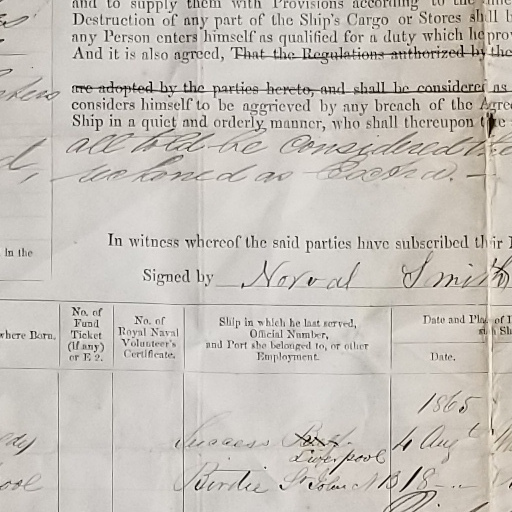 and to supply them with Provisions according to the
Destruction of any part of the Ship's Cargo or Stores shall b
any Person enters himself as qualified for a duty which he pro
And it is also agreed, That the Regulations authorized by the
are adopted by the parties hereto, and shall be considered as
considers himself to be aggrieved by any breach of the Agre
Ship in a quiet and orderly manner, who shall thereupon take
all told be considered the
reckoned as
In witness whereof the said parties have subscribed their
Signed by Norval Smith
in the
where Born.
No. of
Fund
Ticket
(if any)
or E 2.
No. of
Royal Naval
Volunteer's
Certificate.
Ship in which he last served,
Official Number,
and Port she belonged to, or other
Employment.
Date and Place of
Date.
1865
Success
Liverpool
4 Aug
Birdie St John N B 18